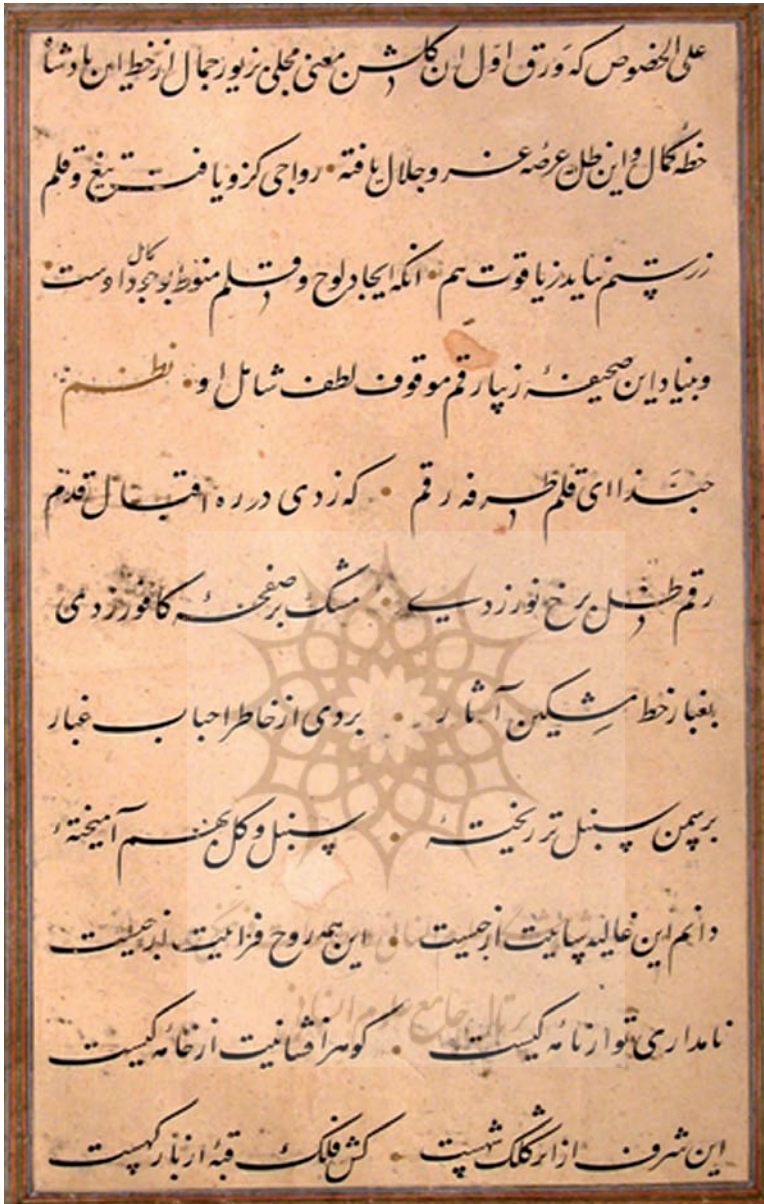 علی الخصوص که ورق اول این گلشن معنی مجلی بزیور جمال از خط این پادشاه
خطه کمال و این ظل عرصه عز و جلال یافته رواجی کزو یافت تیغ و قلم
ز رستم نیاید ز یاقوت هم آنکه ایجاد لوح و قلم منوط بوجود کامل اوست
و بنیاد این صحیفهٔ زیبا رقم موقوف لطف شامل او نظم
حبذا ای قلم طرفه رقم که زدی در ره اقبال قدم
رقم ظل برخ نور زدی مشک بر صفحهٔ کافور زدی
بغبار خط مشکین آثار بردی از خاطر احباب غبار
بر سمن سنبل تر ریختهٔ سنبل و گل بهم آمیختهٔ
دانم این غالیه سائیت از چیست این همه روح فزائیت ز چیست
نامداری تو از نامه کیست گوهر افشانیت از خامه کیست
این شرف از اثر کلک شهست کش فلک قبهٔ از بارگهست
پرتال جامع علوم انسانی